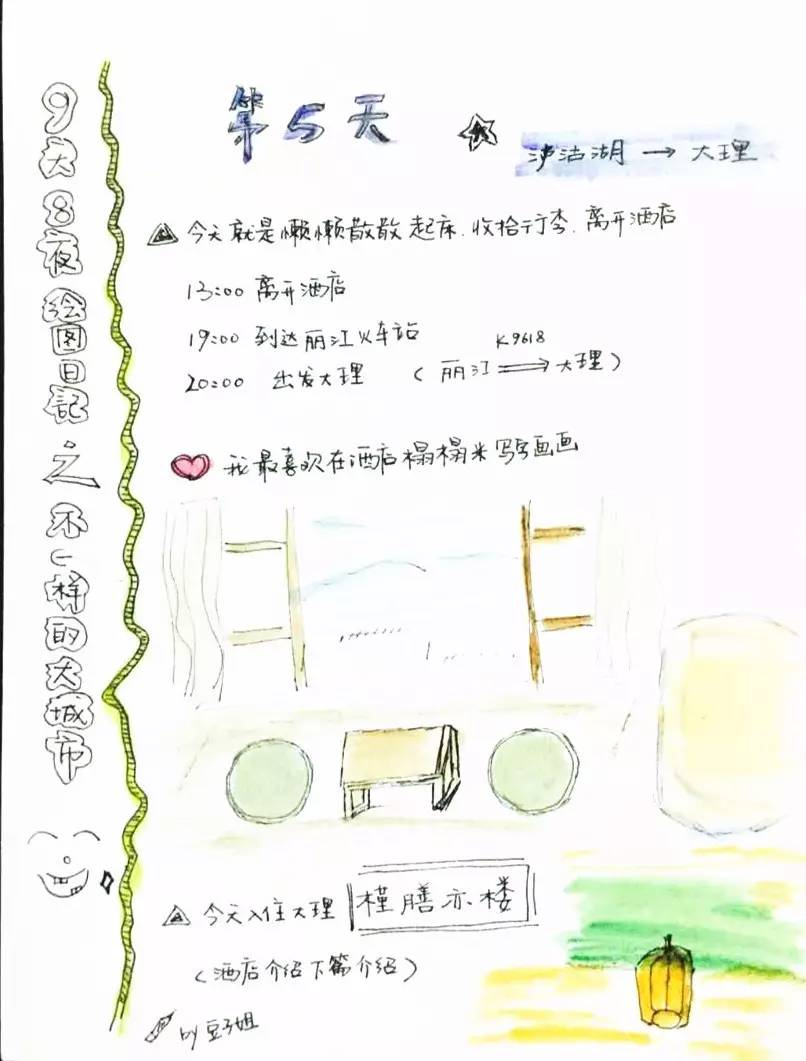 9天8夜绘图日記之不一样的大城市
第5天
泸沽湖 → 大理
今天就是懒懒散散起床.收拾行李.离开酒店
13:00 离开酒店
19:00 到达丽江火车站
K9618
20:00 出发大理 (丽江 ⟹ 大理)
我最喜欢在酒店榻榻米写写画画
今天入住大理 槿膳亦楼
(酒店介绍下篇介绍)
by 豆子姐